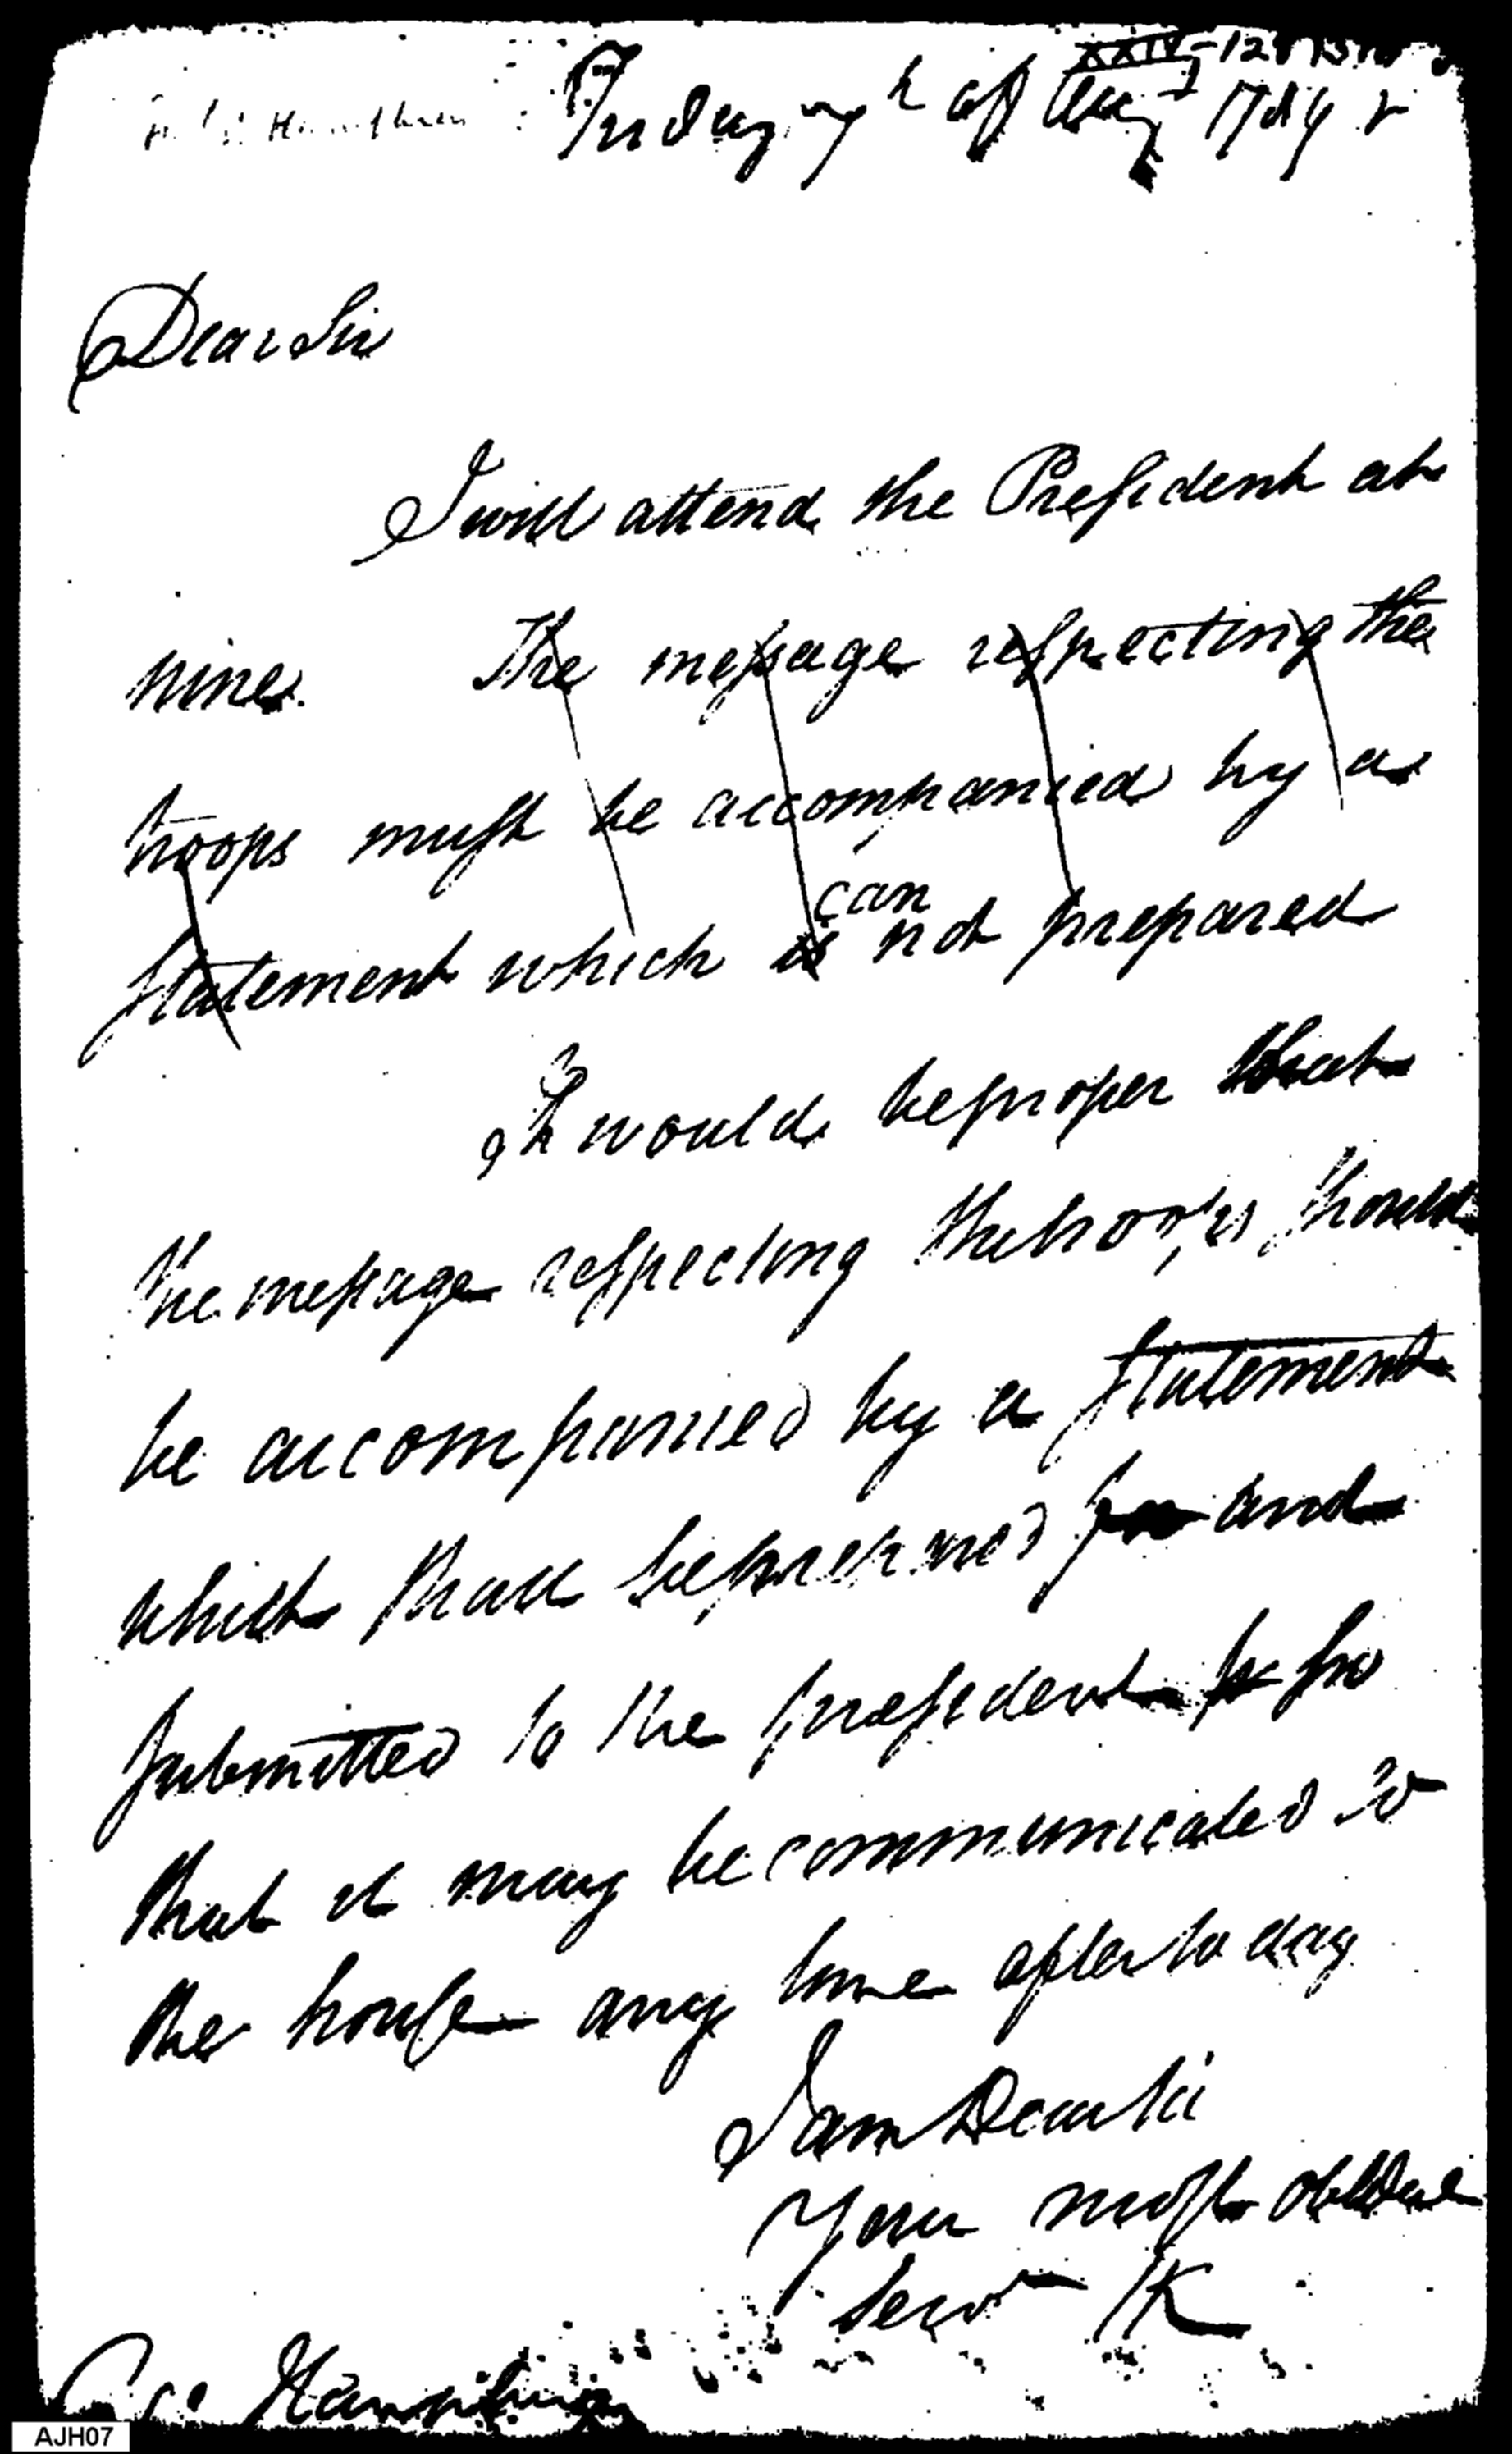 XXIV-128
Friday 7h of Augt 1789
Dear Sir
I will attend the President at
nine. The message respecting the
troops must be accompanied by a
can
statement which is not prepared
It would be proper that
the message respecting the troops, should
be accompanied by a statement
which shall be prepared and
submitted to the president so
that it may be communicated to
the house any time after to day
I am Dear sir
Your most obedient
serv HK
Col Humphreys
AJH07